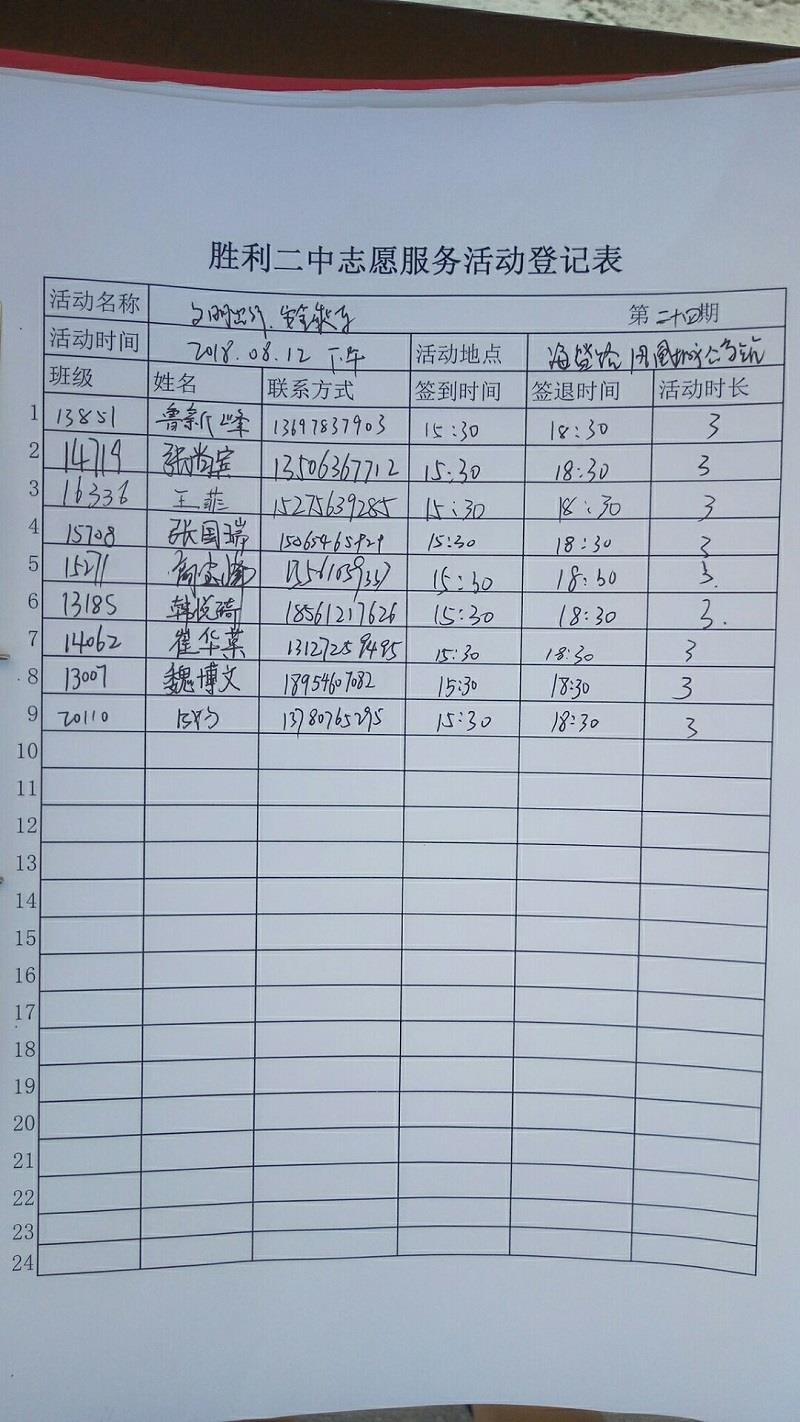 胜利二中志愿服务活动登记表
活动名称 文明出行、安全乘车 第二十四期
活动时间 2018.08.12 下午 活动地点 海贷路
班级 姓名 联系方式 签到时间 签退时间 活动时长
1 13851 鲁新峰 13697837903 15:30 18:30 3
2 14714 张尚宾 13506367712 15:30 18:30 3
3 16336 王菲 15275639285 15:30 18:30 3
4 15708 张国瑞 15065465929 15:30 18:30 3
5 15271 15:30 18:30 3.
6 13185 韩悦琦 18561217626 15:30 18:30 3.
7 14062 崔华英 13127259495 15:30 18:30 3
8 13007 魏博文 18954607082 15:30 18:30 3
9 20110 13780765295 15:30 18:30 3
10
11
12
13
14
15
16
17
18
19
20
21
22
23
24